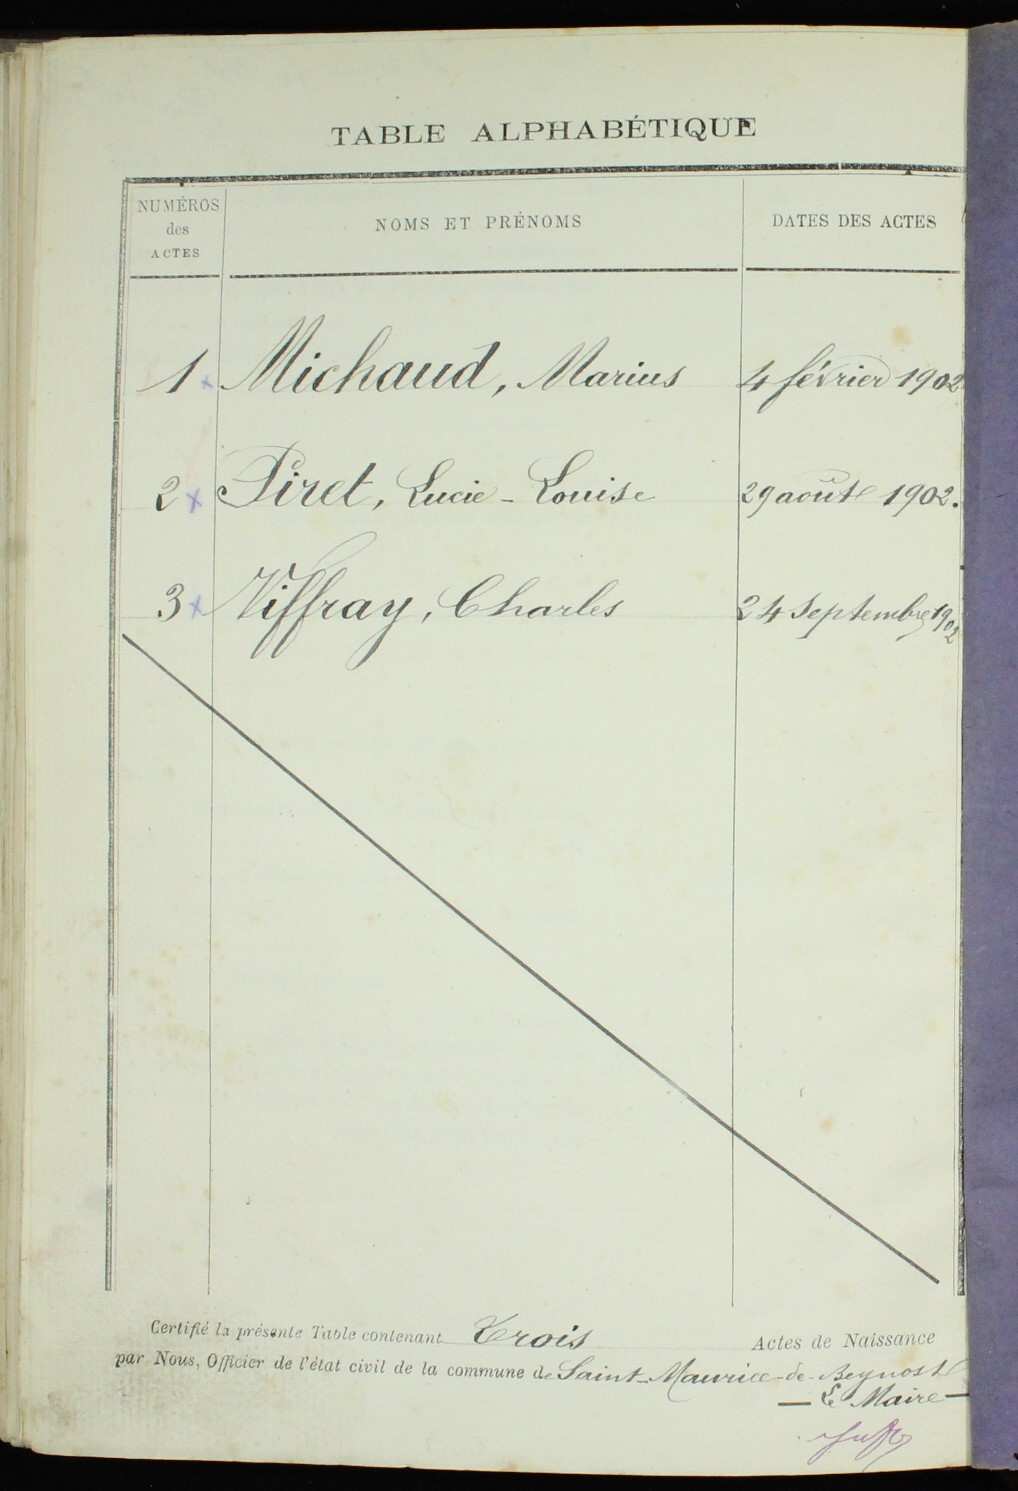 TABLE ALPHABÉTIQUE
NUMÉROS des ACTES
NOMS ET PRÉNOMS
DATES DES ACTES
1 Michaud, Marius 4 février 1902
2 Piret, Lucie-Louise 29 août 1902.
3 Viffray, Charles 24 Septembre 1902
Certifié la présente Table contenant Trois Actes de Naissance
par Nous, Officier de l'état civil de la commune de Saint-Maurice-de-Beynost
— Le Maire —